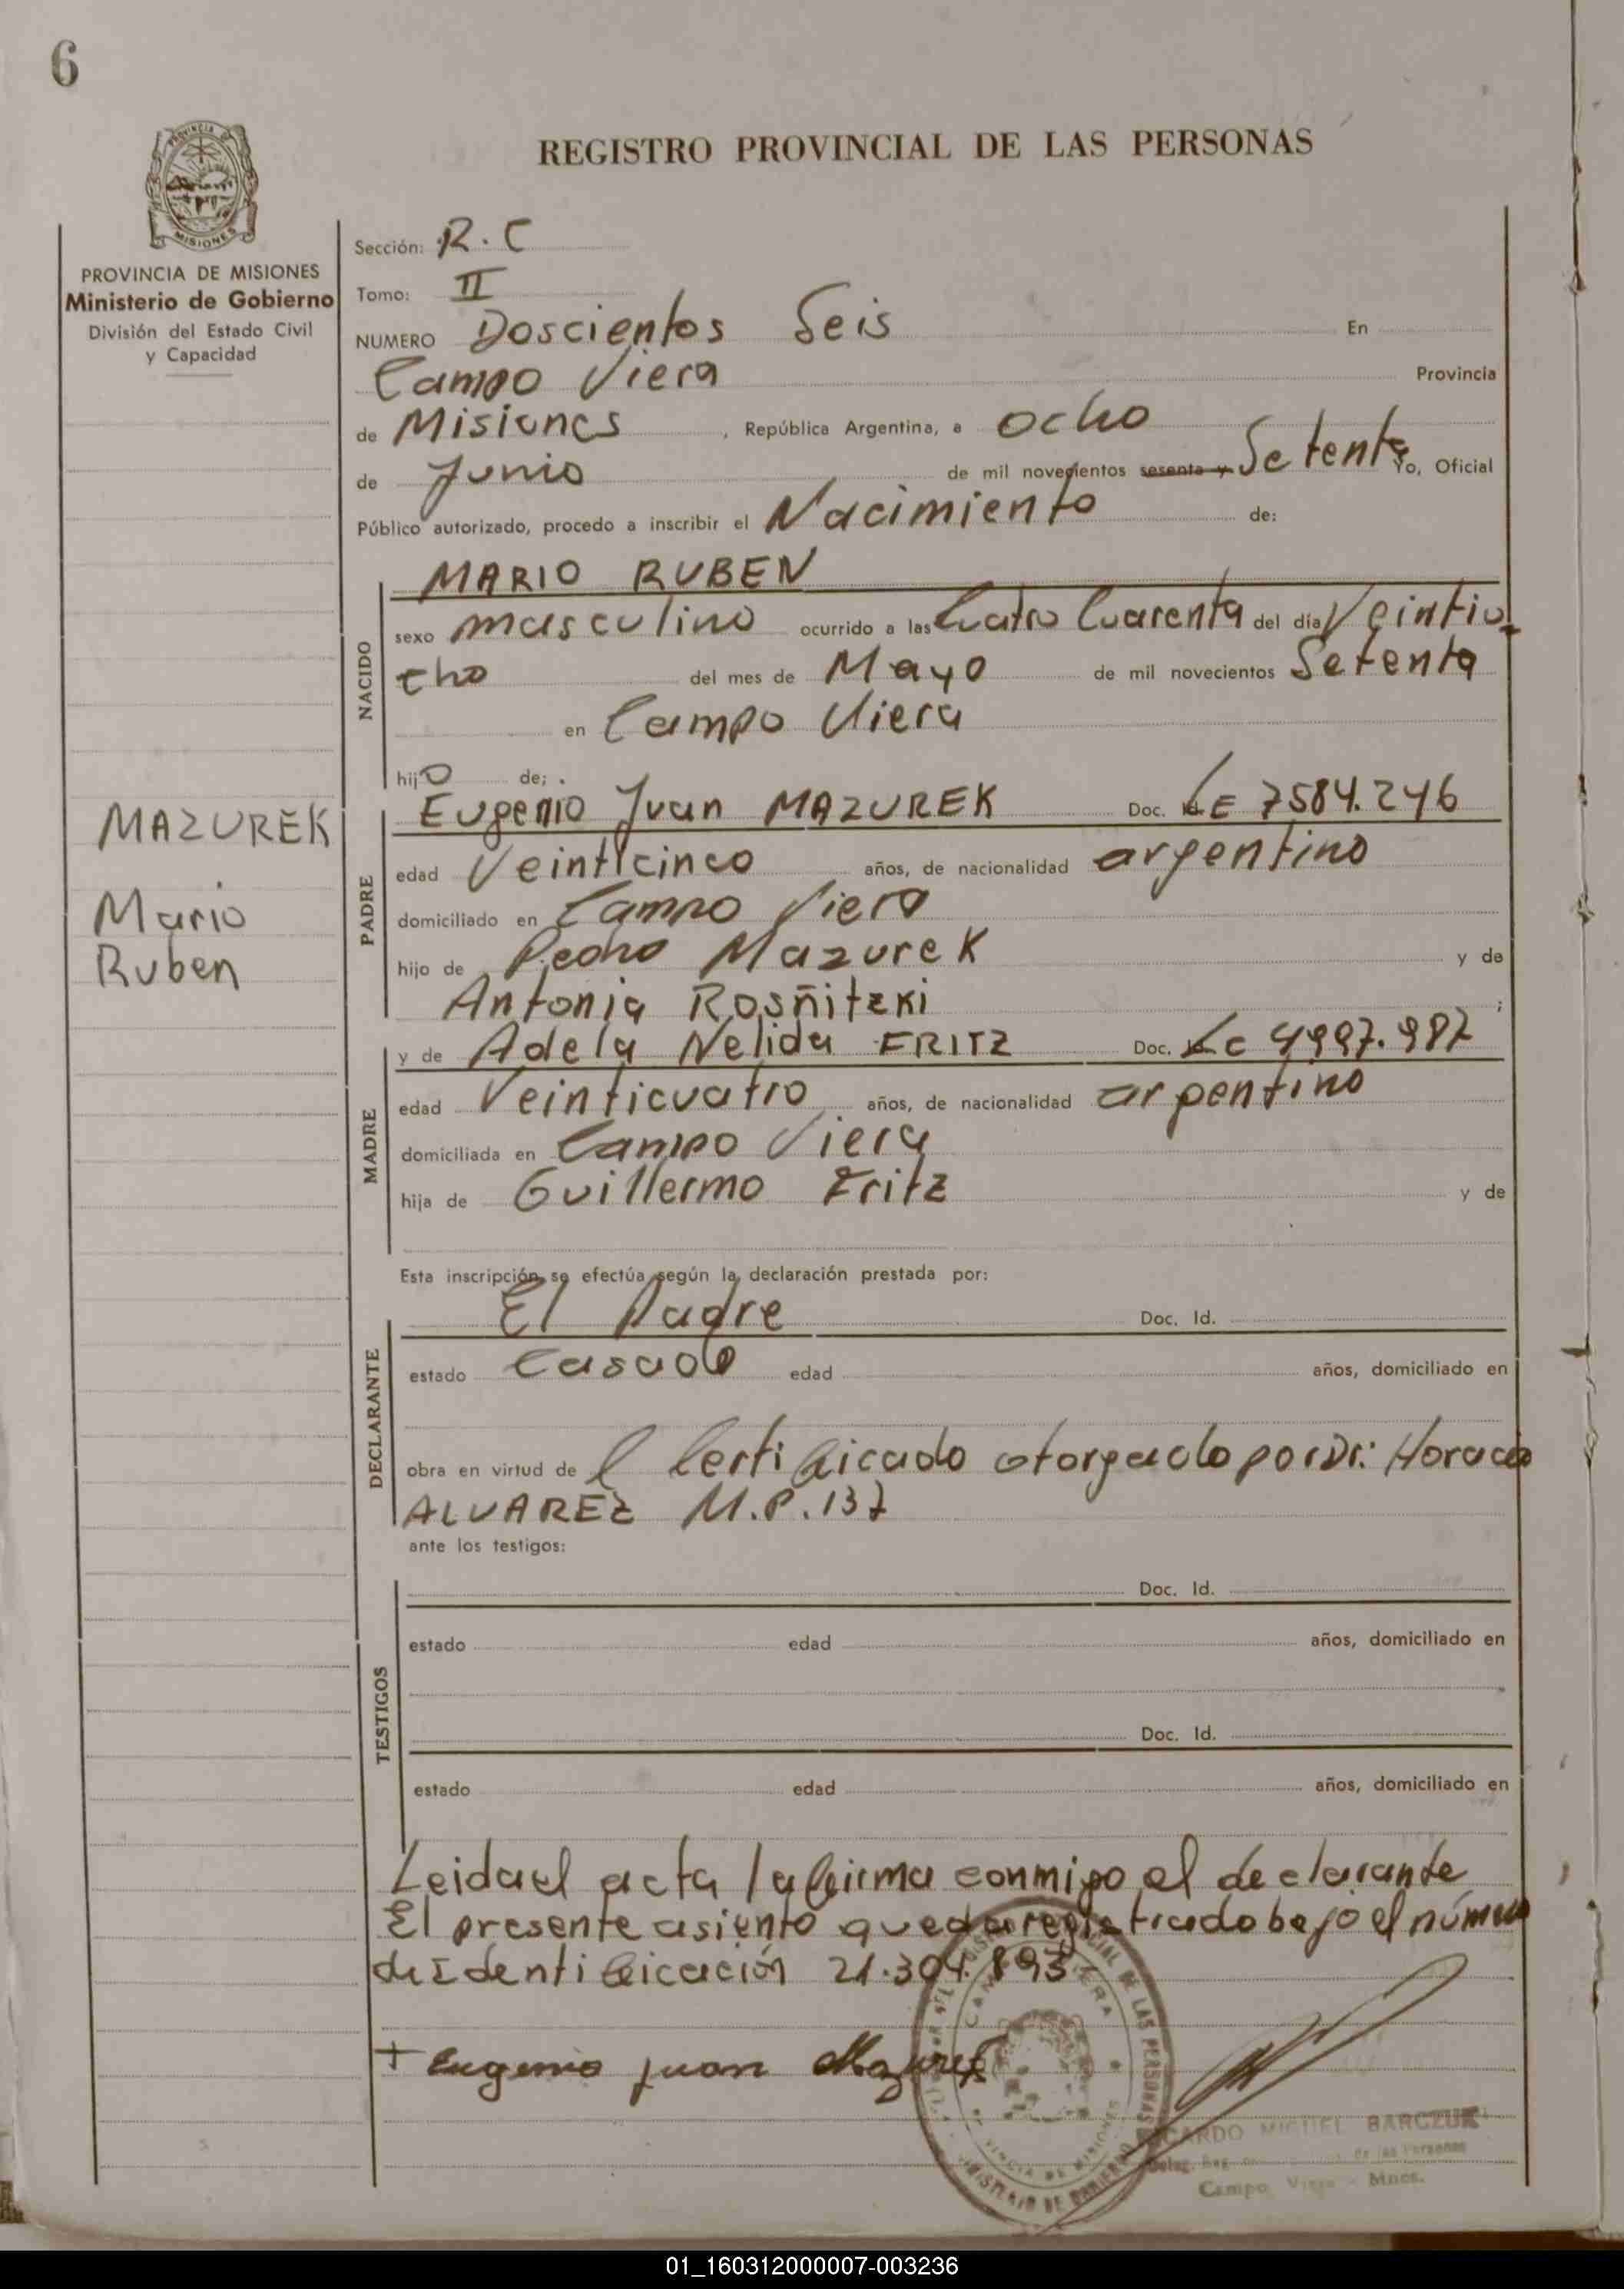 6
REGISTRO PROVINCIAL DE LAS PERSONAS
PROVINCIA DE MISIONES
Ministerio de Gobierno
División del Estado Civil
y Capacidad
Sección: R.C
Tomo: II
NUMERO Doscientos Seis En
Campo Viera Provincia
de Misiones, República Argentina, a ocho
de Junio de mil novecientos sesenta y Setenta Yo, Oficial
Público autorizado, procedo a inscribir el Nacimiento de:
MARIO RUBEN
NACIDO
sexo masculino ocurrido a las Cuatro Cuarenta del día Veintio
cho del mes de Mayo de mil novecientos Setenta
en Campo Viera
hijo de;
MAZUREK
Mario
Ruben
PADRE
Eugenio Juan MAZUREK Doc. LE 7584.246
edad Veinticinco años, de nacionalidad argentino
domiciliado en Campo Viera
hijo de Pedro Mazurek y de
Antonia Rosñitzki ;
MADRE
y de Adela Nelida FRITZ Doc. LC 4997.987
edad Veinticuatro años, de nacionalidad argentino
domiciliada en Campo Viera
hija de Guillermo Fritz y de
Esta inscripción se efectúa según la declaración prestada por:
DECLARANTE
El Padre Doc. Id.
estado Casado edad años, domiciliado en
obra en virtud de l Certificado otorgado por Dr: Horacio
ALVAREZ M.P.137
ante los testigos:
TESTIGOS
Doc. Id.
estado edad años, domiciliado en
Doc. Id.
estado edad años, domiciliado en
Leida el acta la firma conmigo el declarante
El presente asiento queda registrado bajo el número
de Identificación 21.304.893
+ Eugenio Juan Mazurek
RICARDO MIGUEL BARCZUK
de las Personas
Campo Viera - Mnes.
01_160312000007-003236